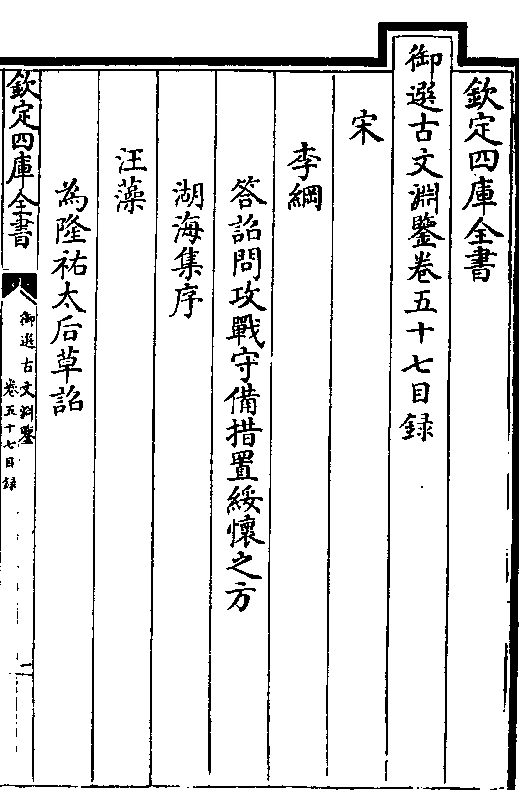 欽定四庫全書
御選古文淵鑒卷五十七目録
宋
李綱
答詔問攻戰守備措置綏懷之方
湖海集序
汪藻
為隆祐太后草詔
欽定四庫全書
御選古文淵鑒
卷五十七目録
一